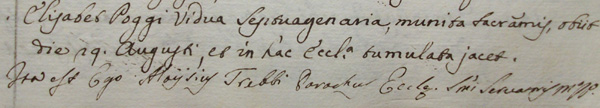 Elisabet Poggi Vidua Septuagenaria, munita Sacramis, obiit
die 29. Augusti, et in hac Eccla tumulata jacet.
Ita est Ego Aloysius Trebbi Parochus Eccle. Smi